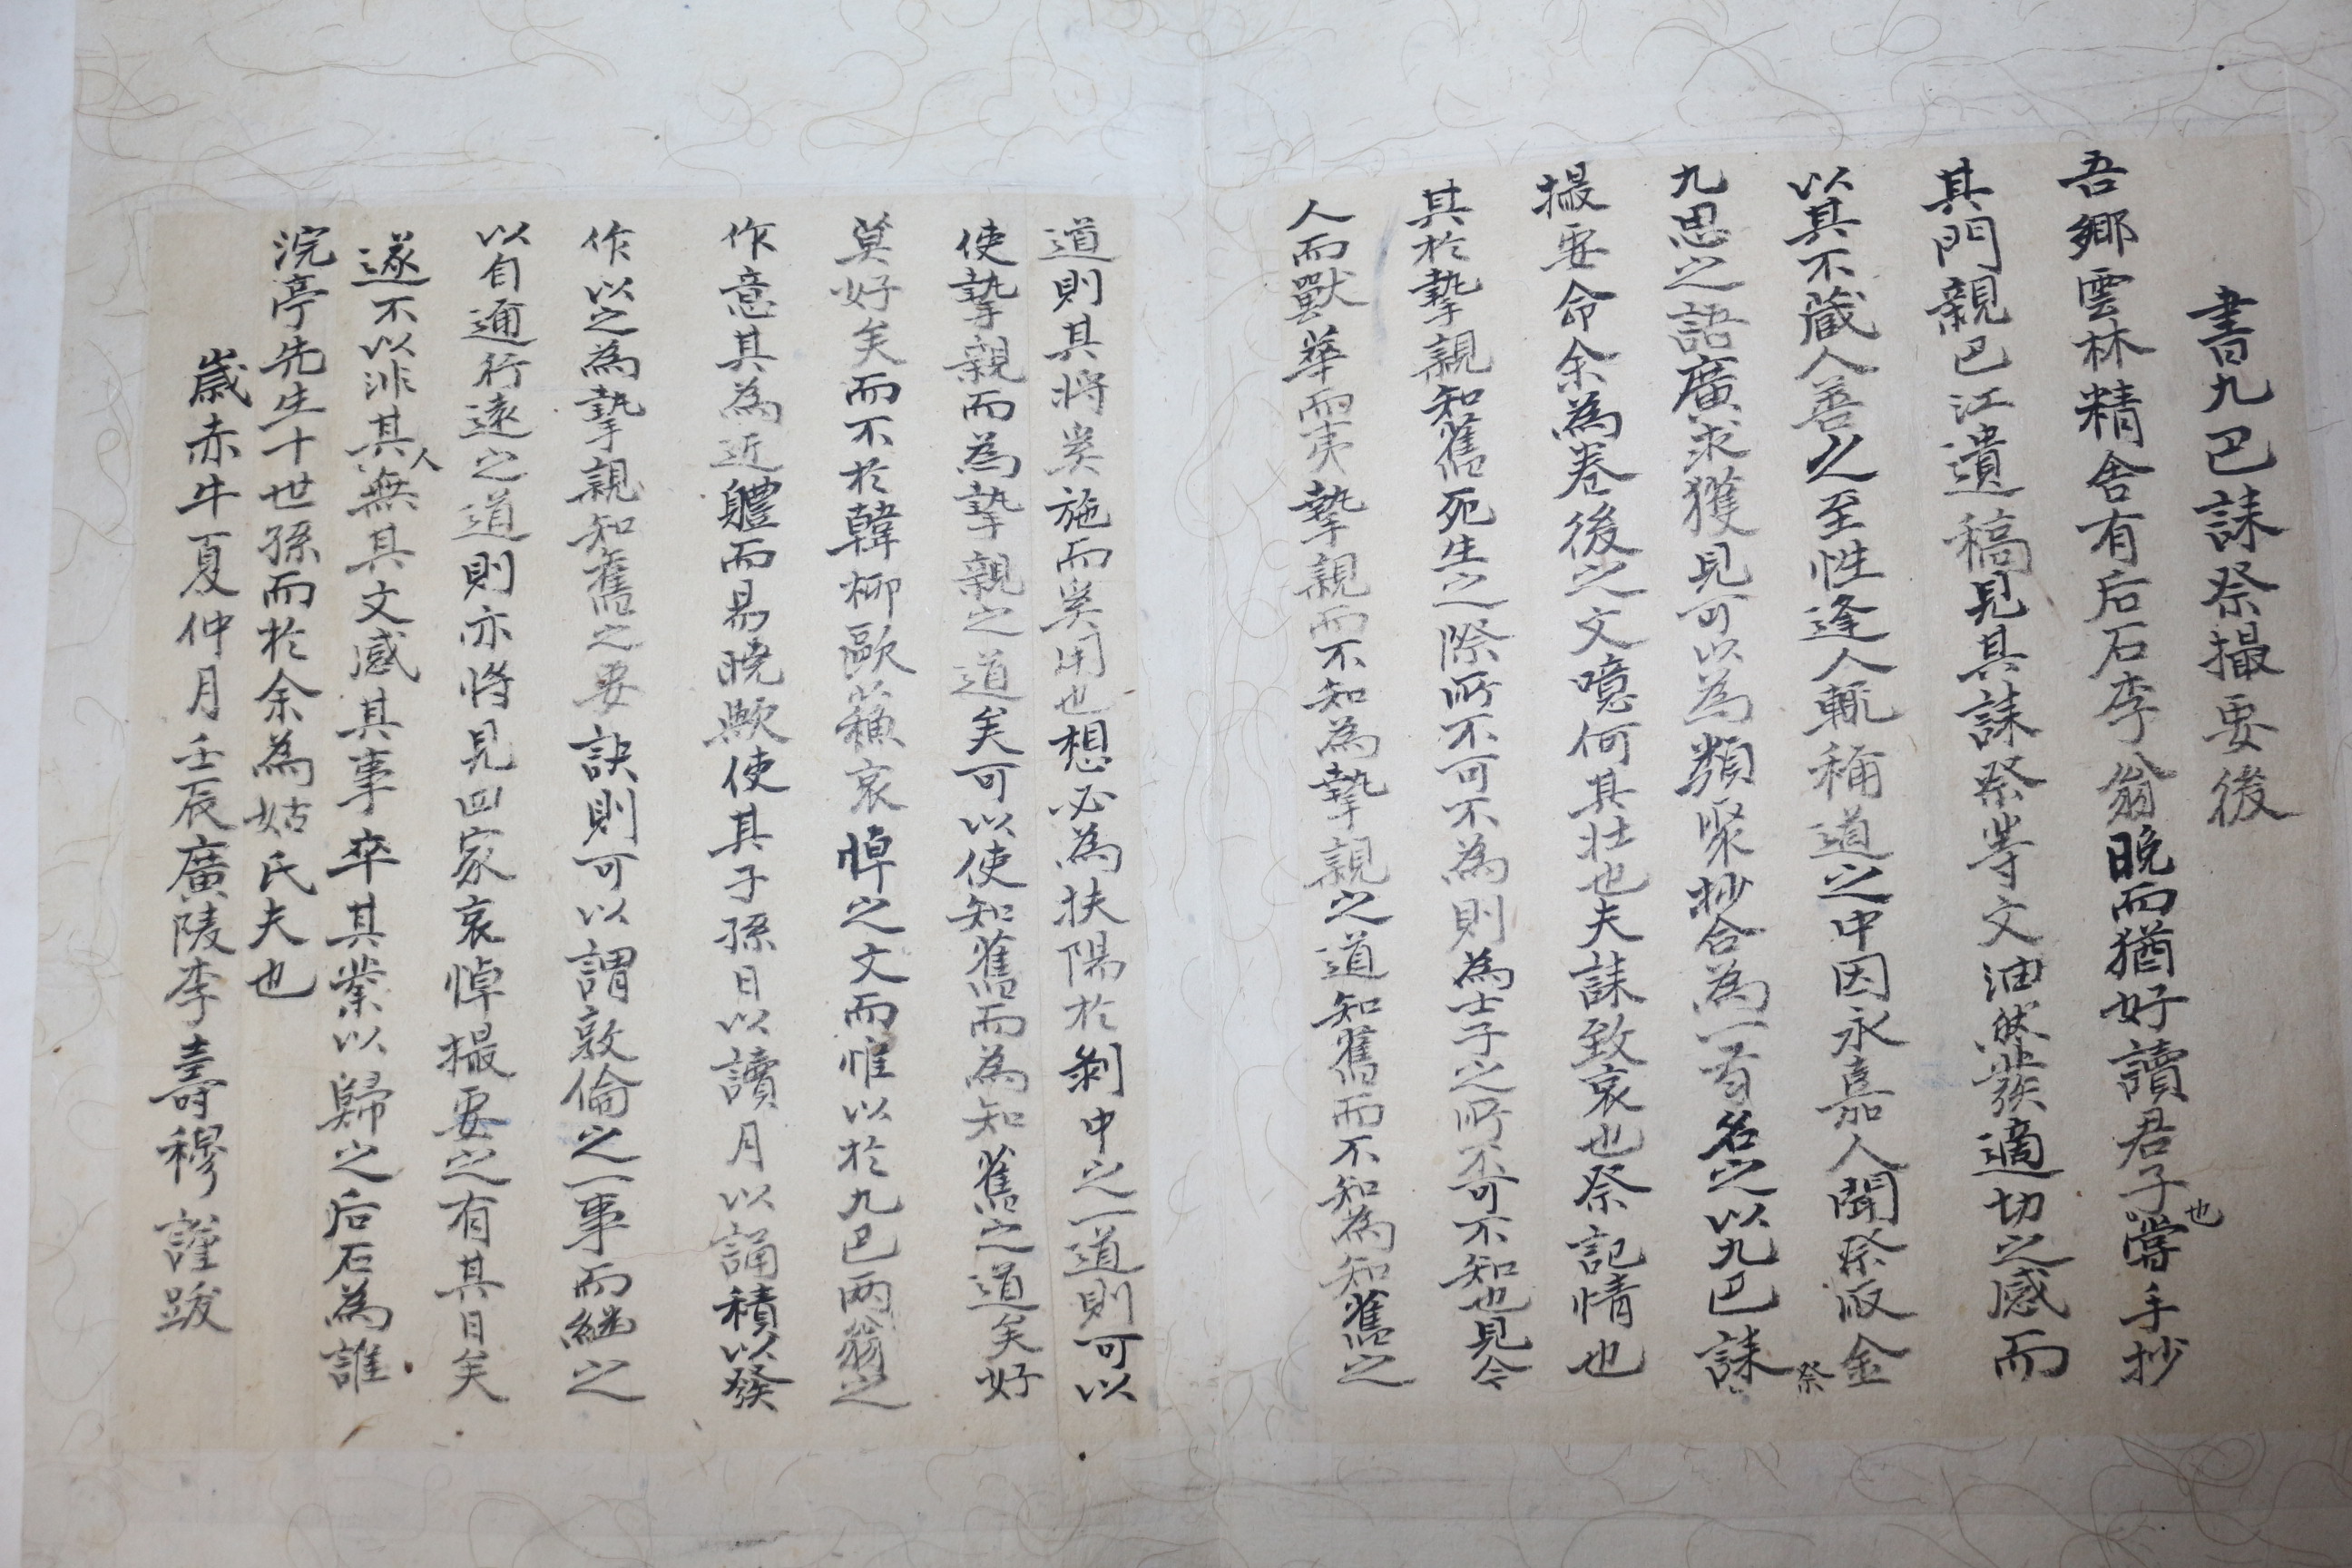 書九巴誄祭撮要後
吾鄉雲林精舍有后石李翁晩而猶好讀君子也嘗手抄
其門親巴江遺稿見其誄祭等文油然發適切之感而
以其不蔵人善之至性逢人輒稱道之中因永嘉人聞祭酒金
九思之語廣求獲見可以為類聚抄合為一者名之以九巴誄祭
撮要命余為卷後之文噫何其壮也夫誄致哀也祭記情也
其於摯親知舊死生之際所不可不為則為士子之所不可不知也見今
人而獸華而夷摯親而不知為摯親之道知舊而不知為知舊之
道則其將奚施而奚用也想必為扶陽於剝中之一道則可以
使摯親而為摯親之道矣可以使知舊而為知舊之道矣好
莫好矣而不於韓柳歐蘓哀悼之文而惟以於九巴兩翁之
作意其為近軆而易曉歟使其子孫日以讀月以誦積以發
作以之為摯親知舊之要訣則可以謂敦倫之一事而継之
以自邇行遠之道則亦將見四家哀悼撮要之有其日矣
遂不以非其人無其文感其事卒其業以歸之后石為誰
浣亭先生十世孫而於余為姑氏夫也
歳赤牛夏仲月壬辰廣陵李壽穆謹跋